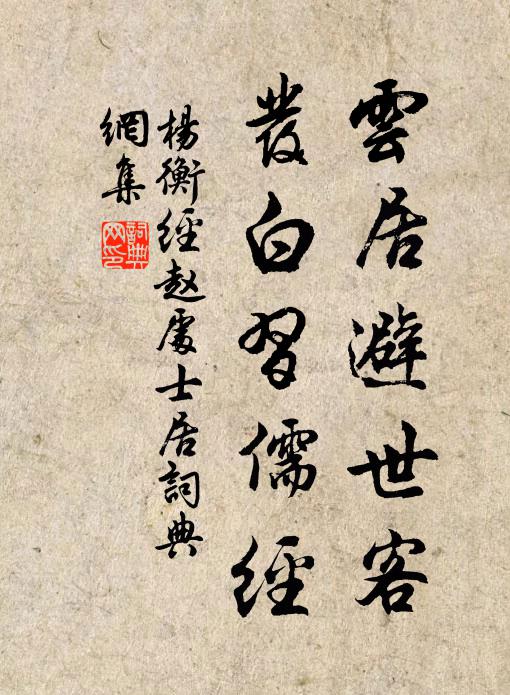 雲居避世客
發白習儒經
楊衡經赵處士居詞典
網集
詞典
网印